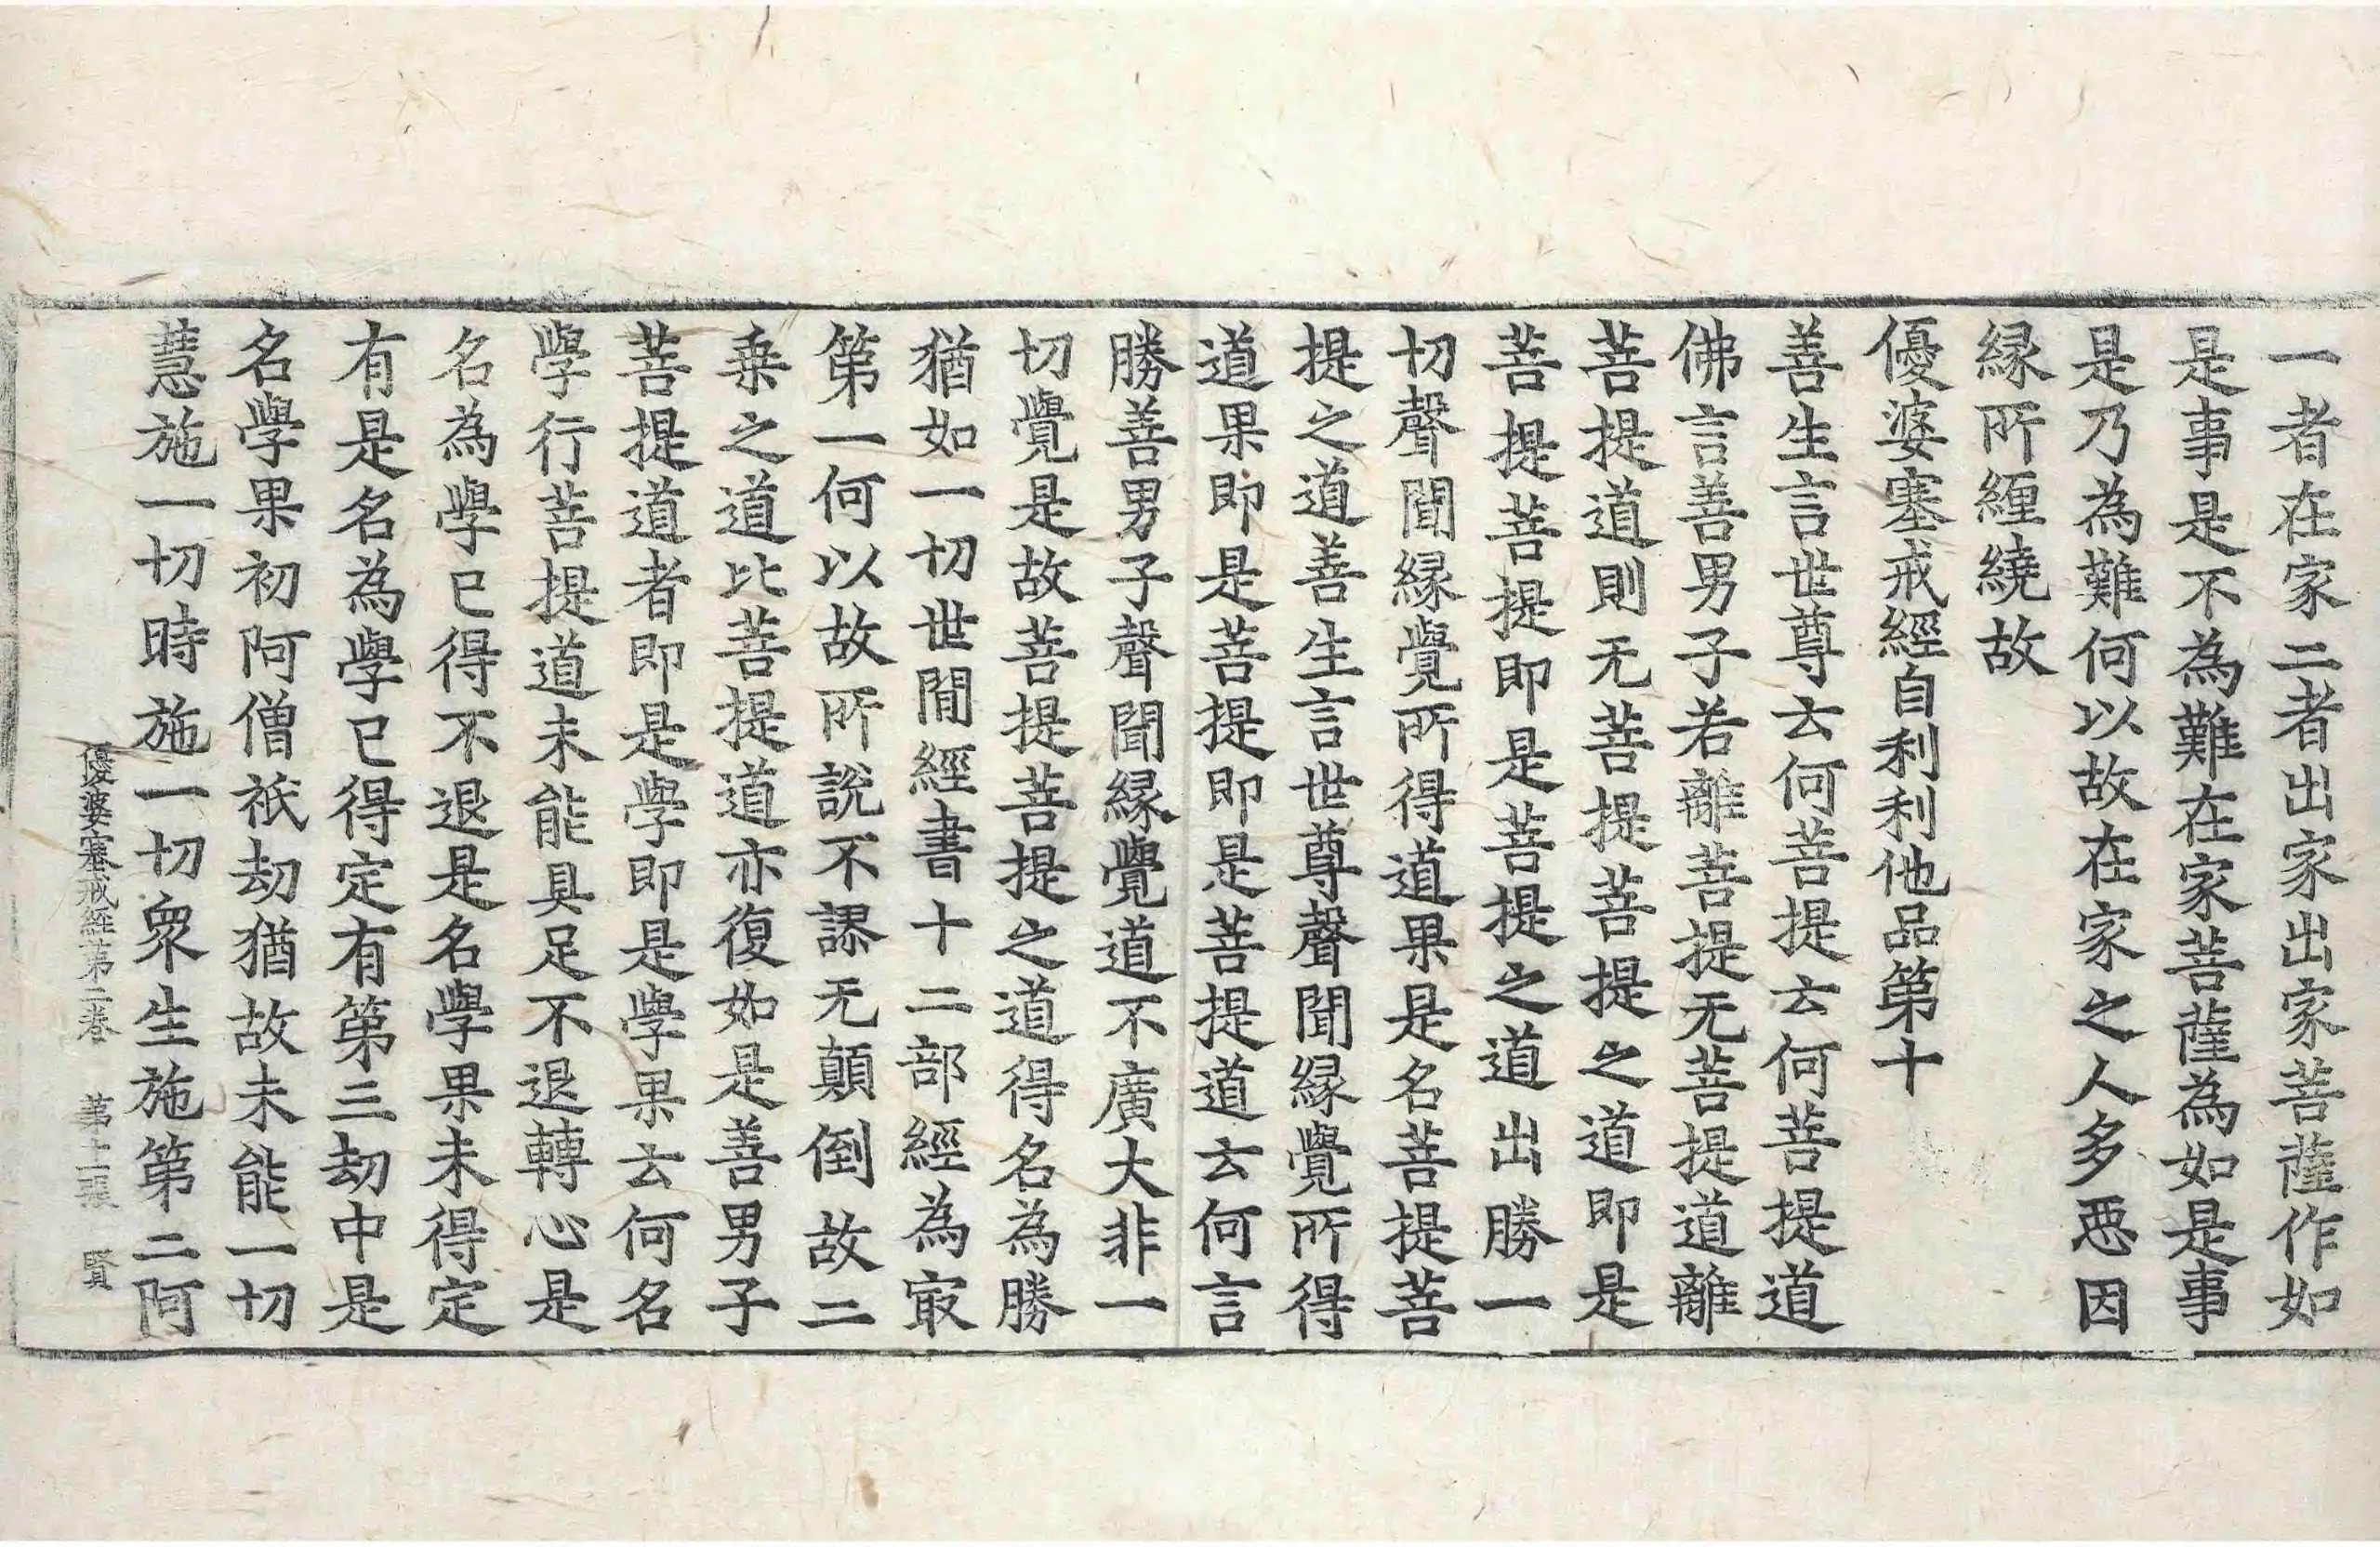 一者在家二者出家出家菩薩作如
是事是不為難在家菩薩為如是事
是乃為難何以故在家之人多惡因
緣所纏繞故
優婆塞戒經自利利他品第十
善生言世尊云何菩提云何菩提道
佛言善男子若離菩提无菩提道離
菩提道則无菩提菩提之道即是
菩提菩提即是菩提之道出勝一
切聲聞緣覺所得道果是名菩提菩
提之道善生言世尊聲聞緣覺所得
道果即是菩提即是菩提道云何言
勝善男子聲聞緣覺道不廣大非一
切覺是故菩提菩提之道得名為勝
猶如一切世間經書十二部經為寂
第一何以故所說不謬无顛倒故二
乘之道比菩提道亦復如是善男子
菩提道者即是學即是學果云何名
學行菩提道未能具足不退轉心是
名為學已得不退是名學果未得定
有是名為學已得定有第三劫中是
名學果初阿僧祇劫猶故未能一切
慧施一切時施一切眾生施第二阿
優婆塞戒經第二卷 第十二張 賢